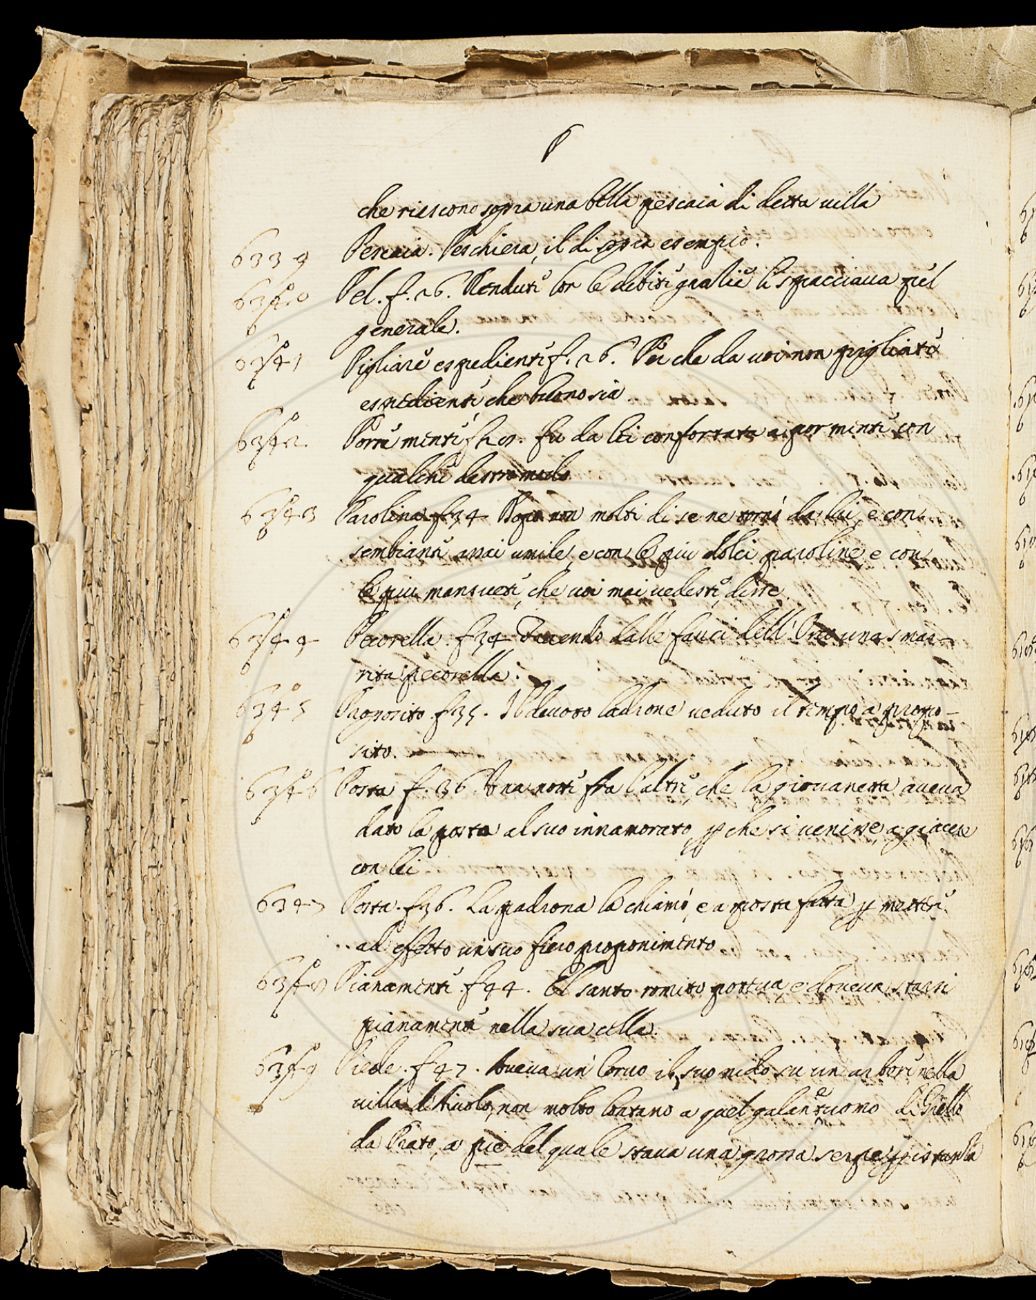 P
che riescono sopra una bella pescaia di detta uilla
6339 Pescaia. Peschiera, il di sopra esempio.
6340 Pel. f. 26. Renduti le debiti grazie li spacciaua pel
generale.
6341 Pigliare espedienti f. 26. Poi che da uoi non pigliate
espedienti che buono sia
6342 Porre menti f. 29. fu da lei confortata a por menti con
qualche destro modo
6343 Parolina f. 34 Dopo non molti dì se ne tornò da lui, e con
sembianti assai umile, e con le piu dolci paroline e con
le piu mansueti, che uoi mai uedesti, disse
6344 Pecorella. f. 34 Traendo dalle fauci dell'Orso una smar-
rita pecorella.
6345 Proposito. f. 35. Il diuoto ladrone ueduto il tempo a propo-
sito.
6346 Posta f. 36 Una notti fra l'altri, che la giouanetta aueua
dato la posta al suo innamorato, che si uenisse a giacere
con lei
6347 Posta. f. 36. La padrona la chiamò, e a posta fatta metteri
ad effetto un suo fiero proponimento.
6348 Pianamenti f. 44. El santo romito poteua e doueua starsi
pianamenti nella sua cella.
6349 Piede. f. 47. Aueua un Corbo il suo nido su un arbori nella
uilla non molto lontano a quel galantuomo di
da Prato, a pie del quale staua una grossa serpe,